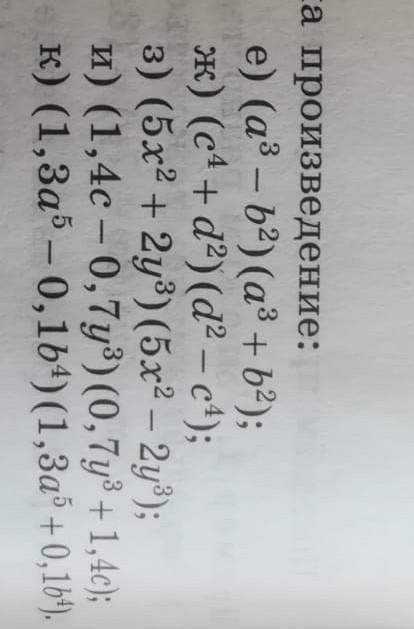 а произведение:
е) (a³ − b²)(a³ + b²);
ж) (c⁴ + d²)(d² − c⁴);
з) (5x² + 2y³)(5x² − 2y³);
и) (1,4c − 0,7y³)(0,7y³ + 1,4c);
к) (1,3a⁵ − 0,1b⁴)(1,3a⁵ + 0,1b⁴).